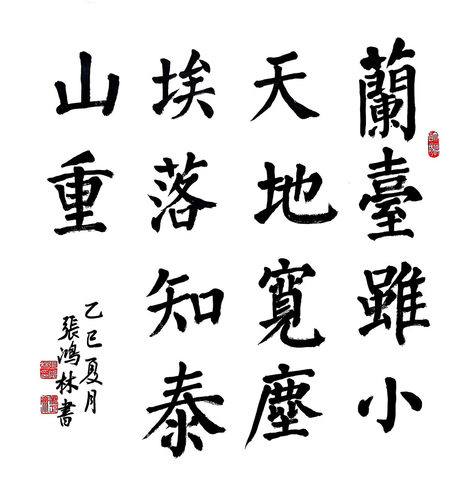 蘭臺雖小
天地寬塵
埃落知泰
山重
乙巳夏月
張鴻林書